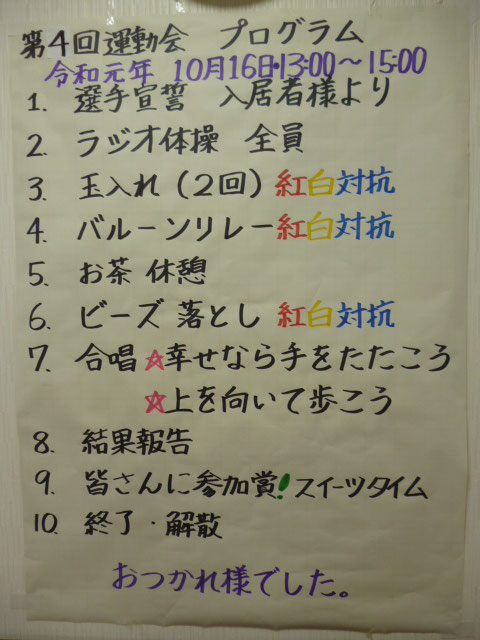 第4回運動会 プログラム
令和元年 10月16日・13:00〜15:00
1. 選手宣誓 入居者様より
2. ラジオ体操 全員
3. 玉入れ(2回)紅白対抗
4. バルーンリレー紅白対抗
5. お茶 休憩
6. ビーズ 落とし 紅白対抗
7. 合唱 ☆幸せなら手をたたこう
☆上を向いて歩こう
8. 結果報告
9. 皆さんに参加賞!スイーツタイム
10. 終了・解散
おつかれ様でした。